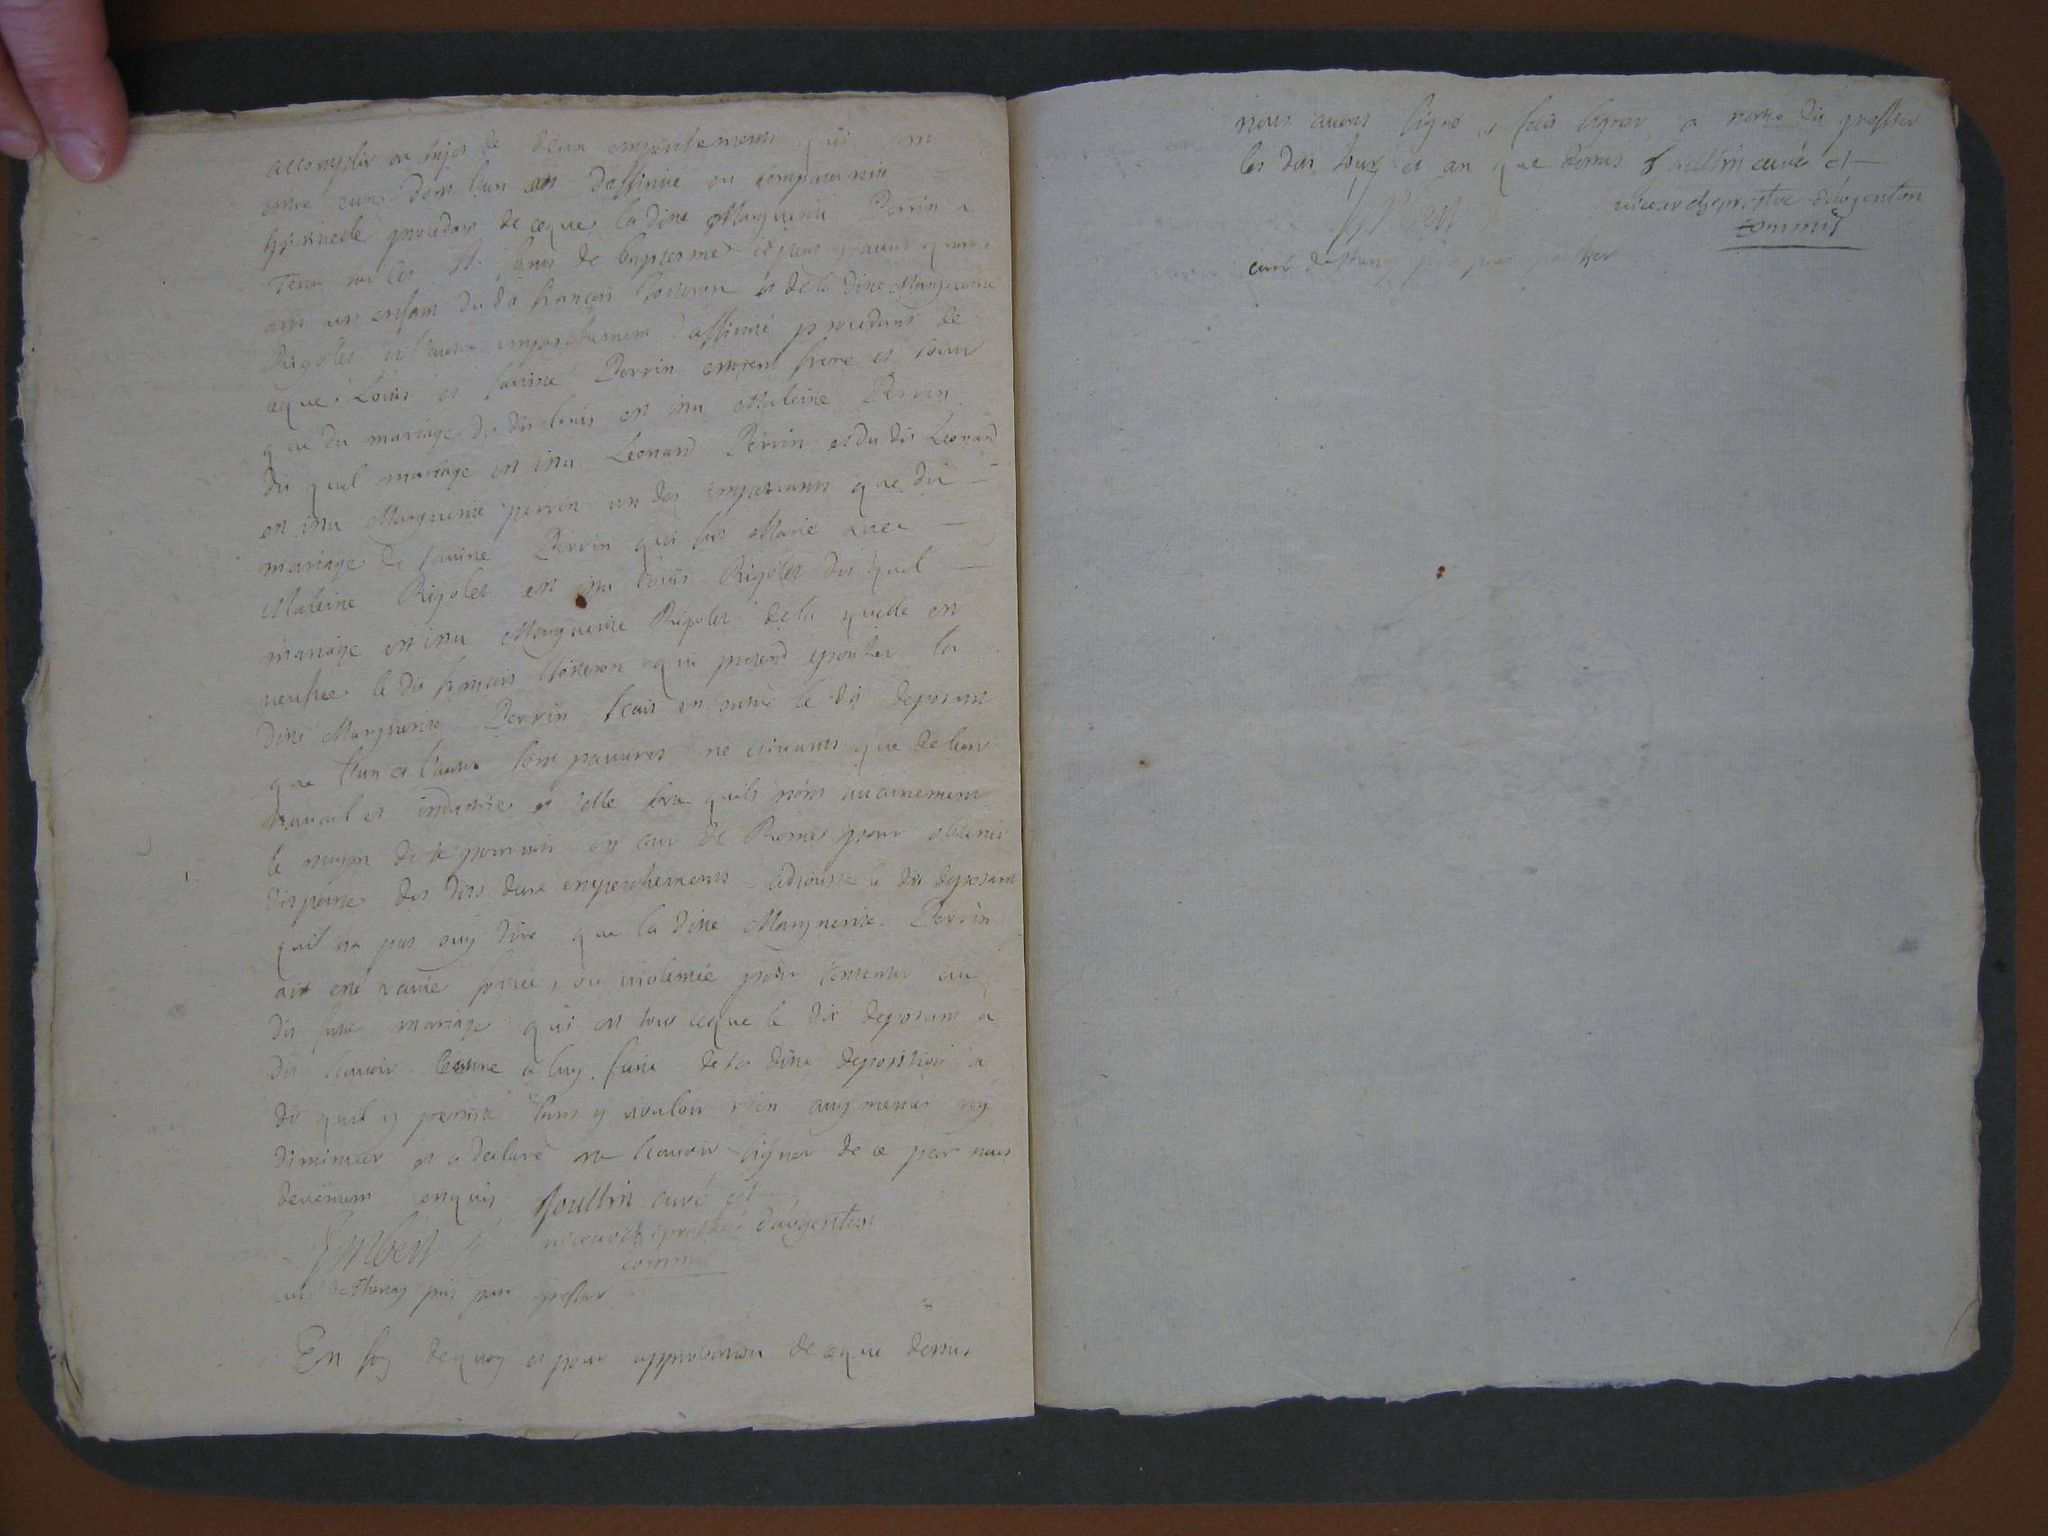 accomplir au sujet de deux empeschements qui sont
entre eux dont l'un est d'affinité ou compaternité
spirituelle procedant de ceque la ditte Marguerite Perrin a
tenu sur les st. fonts de baptesme il peut y avoir quatre
ans un enfant du dit françois et de la ditte Marguerite
Rigolet et l'autre empeschement d'affinité procedant de
ceque Louis et Perrin estoient frere et soeur
que du mariage du dit louis est issu Perrin
du quel mariage est issu Leonard Perrin et du dit Leonard
est issu Marguerite perrin un des impetrants que du
mariage de Perrin qui fut Marié avec
Rigolet est issu louis Rigolet du quel
mariage est issu Marguerite Rigolet de la quelle est
veufve le dit françois qui pretend epouser la
ditte Marguerite Perrin scait en outre le dit deposant
que l'un et l'autre sont pauvres ne vivants que de leur
travail et industrie et telle sorte quils n'ont aucunement
le moyen de se pourvoir en cour de Rome pour obtenir
dispense des dits deux empeschements adjouste le dit deposant
quil n'a pas ouy dire que la ditte Marguerite Perrin
ait esté ravie forcée, ou violentée pour consentir au
dit futur mariage qui est tout ceque le dit deposant a
dit scavoir lecture a luy faite de sa ditte deposition a
dit quil y persiste sans y vouloir rien augmenter ny
diminuer et a declaré ne scavoir signer de ce par nous
deuement enquis Poultrit curé et
Imbert vicearchiprestre d'argenton
commis
curé de Thenay pris pour greffier
En foy dequoy et pour approbation de ceque dessus
nous avons signé et fait signer a notre dit greffier
les dits jour et an que dessus Poultrit curé et
vicearchiprestre d'argenton
Imbert commis
curé de Thenay pris pour greffier